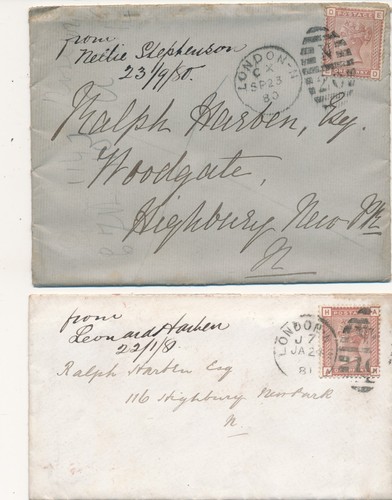 from
Nellie Stephenson
23/9/80.
LONDON·N
CX
SP 23
80
POSTAGE
Ralph Harben, Esq.
Woodgate,
Highbury New Pk
N
from
Leonard Harben
22/1/81
LONDON
J7
JA 24
81
POSTAGE
H A
Ralph Harben Esq
116 Highbury New Park
N